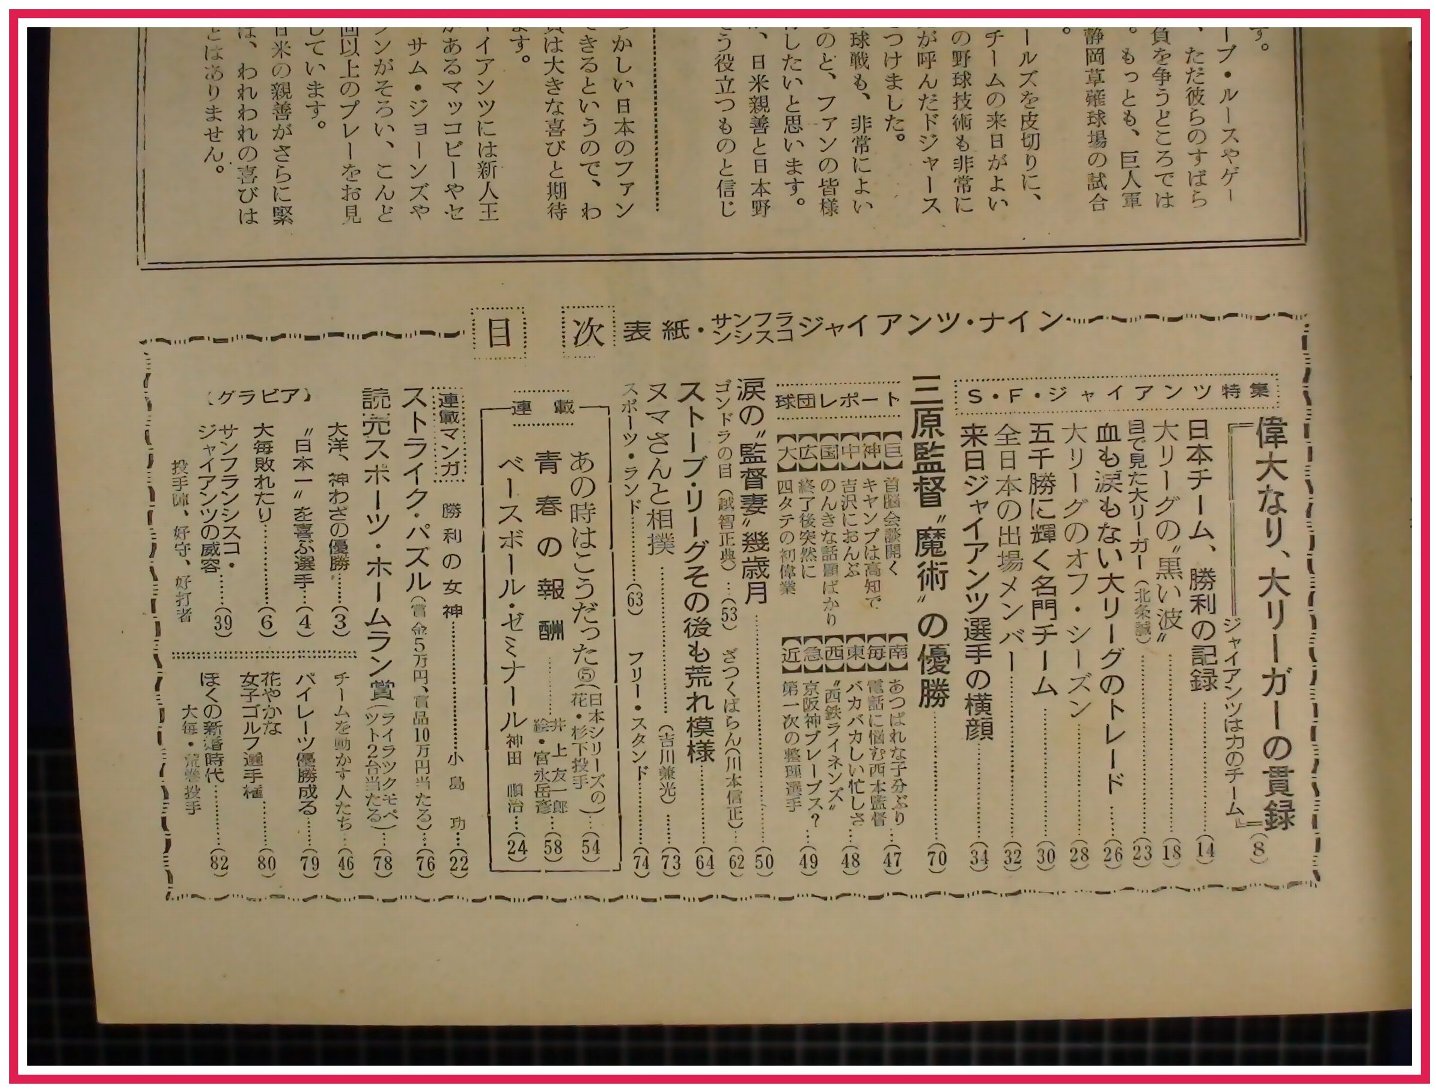 す。
ーブ・ルースやゲー
、ただ彼らのすばら
負を争うところでは
。もっとも、巨人軍
静岡草薙球場の試合
。
ールズを皮切りに、
チームの来日がよい
の野球技術も非常に
が呼んだドジャース
つけました。
球戦も、非常によい
のと、ファンの皆様
したいと思います。
、日米親善と日本野
う役立つものと信じ
つかしい日本のファン
きるというので、わ
は大きな喜びと期待
ます。
イアンツには新人王
があるマッコビーやセ
サム・ジョーンズや
ンがそろい、こんど
回以上のプレーをお見
しています。
日米の親善がさらに緊
は、われわれの喜びは
とはありません。
目次
表紙・サンフランシスコジャイアンツ・ナイン
S・F・ジャイアンツ特集
偉大なり、大リーガーの貫録(8)
『ジャイアンツは力のチーム』
日本チーム、勝利の記録(14)
大リーグの“黒い波”(18)
目で見た大リーガー(北条誠)(23)
血も涙もない大リーグのトレード(26)
大リーグのオフ・シーズン(28)
五千勝に輝く名門チーム(30)
全日本の出場メンバー(32)
来日ジャイアンツ選手の横顔(34)
三原監督“魔術”の優勝(70)
球団レポート
【巨】首脳会談開く
【神】キャンプは高知で
【中】吉沢におんぶ
【国】のんきな話題ばかり
【広】終了後突然に
【大】四タテの初偉業
【南】あっぱれな子分ぶり(47)
【毎】電話に悩む西本監督
【東】バカバカしい忙しさ(48)
【西】“西鉄ライネンズ”
【急】京阪神ブレーブス?(49)
【近】第一次の整理選手
涙の“監督妻”幾歳月(50)
ゴンドラの目(越智正典)…(53)
ざっくばらん(川本信正)…(62)
ストーブ・リーグその後も荒れ模様(64)
ヌマさんと相撲(吉川兼光)(73)
スポーツ・ランド(63)
フリー・スタンド(74)
連載
あの時はこうだった⑤(日本シリーズの花・杉下投手)…(54)
青春の報酬 井上友一郎 絵・宮永岳彦…(58)
ベースボール・ゼミナール 神田順治…(24)
連載マンガ 勝利の女神 小島功…(22)
ストライク・パズル(賞金5万円、賞品10万円当たる)…(76)
読売スポーツ・ホームラン賞(ライラックモペット2台当たる)…(78)
(グラビア)
大洋、神わざの優勝…(3)
“日本一”を喜ぶ選手…(4)
大毎敗れたり(6)
サンフランシスコ・
ジャイアンツの威容(39)
投手陣、好守、好打者
チームを動かす人たち…(46)
パイレーツ優勝成る(79)
花やかな
女子ゴルフ選手権(80)
ぼくの新婚時代(82)
大毎・荒巻投手